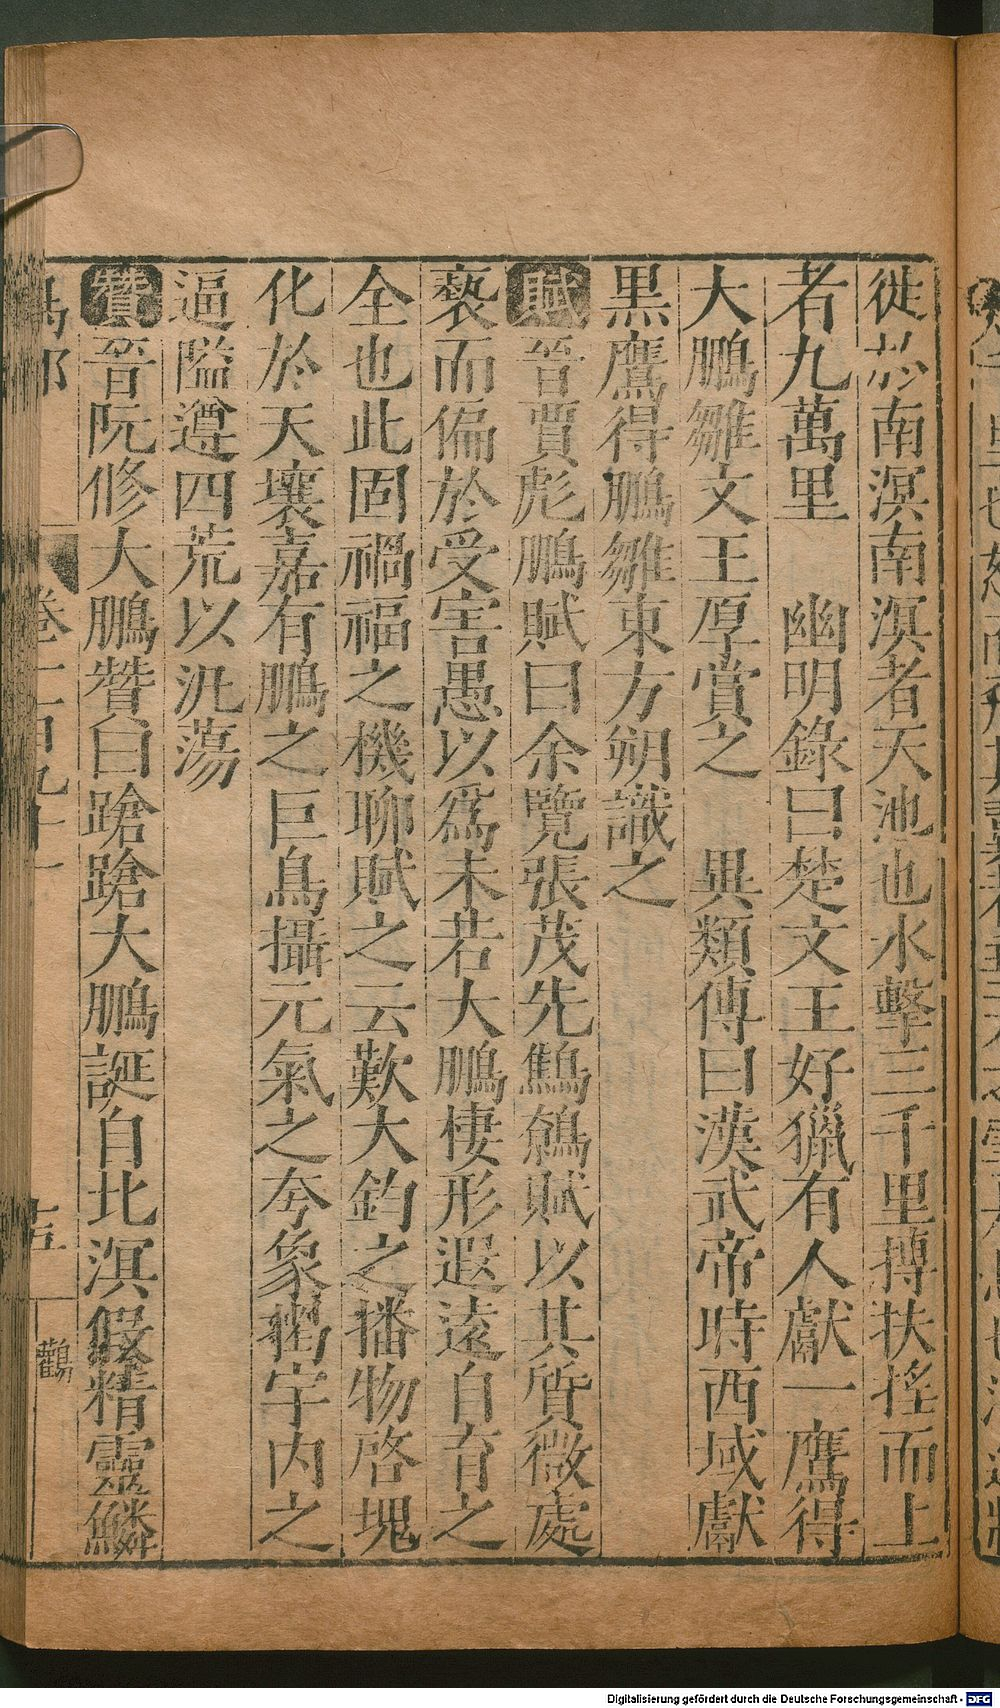 徙於南溟南溟者天池也水擊三千里摶扶搖而上
者九萬里　幽明錄曰楚文王好獵有人獻一鷹得
大鵬雛文王厚賞之　異類傳曰漢武帝時西域獻
黑鷹得鵬雛東方朔識之
賦晉賈彪鵬賦曰余覽張茂先鷦鷯賦以其質微處
褻而偏於受害愚以爲未若大鵬棲形遐遠自育之
全也此固禍福之機聊賦之云歎大鈞之播物啓塊
化於天壤嘉有鵬之巨鳥攝元氣之夸象揭宇內之
逼隘遵四荒以汎蕩
贊晉阮修大鵬贊曰蹌蹌大鵬誕自北溟假精靈鱗
鳥部
卷二百九十一
十五
鸛
Digitalisierung gefördert durch die Deutsche Forschungsgemeinschaft - DFG